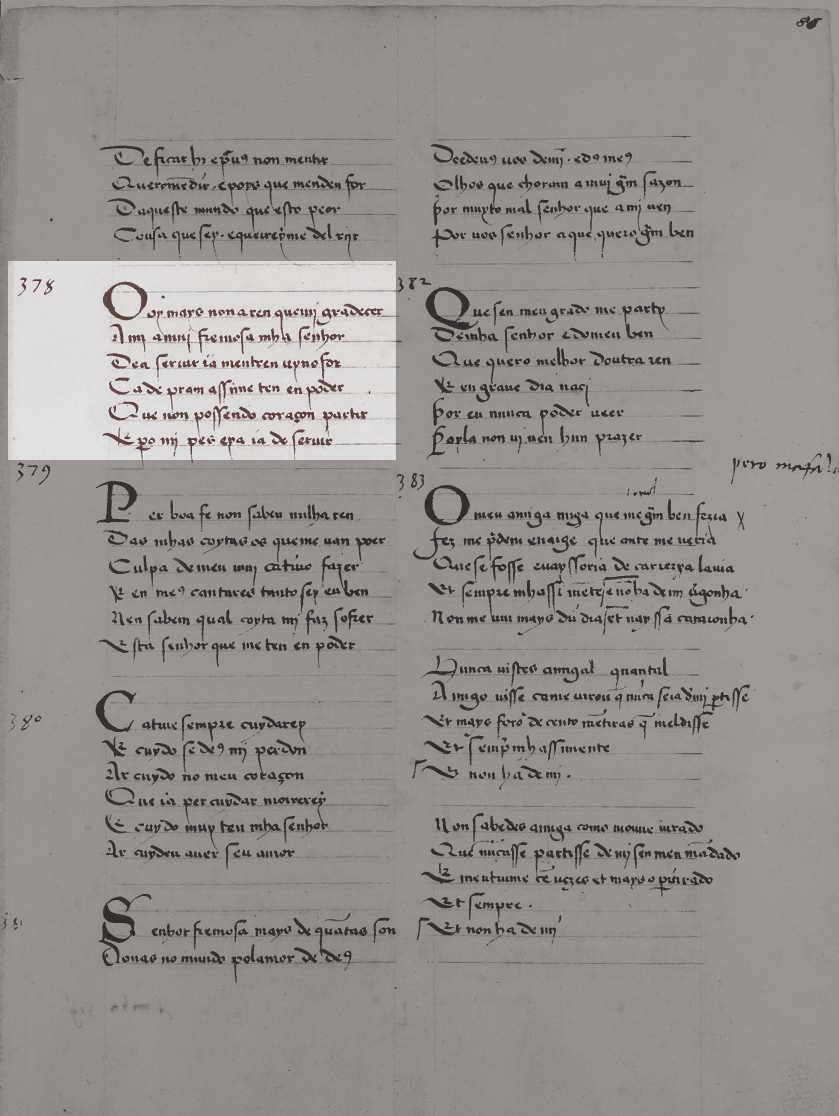 86
De ficar hi epꝰus non mentir
Querome dir. epoys que menden for
Daqueste mundo que esto peor
Cousa que sey. equeireyme del rijr
378
Ooy mays non a ren quemi gradecer
A mi a mui fremosa mha senhor
Dea seruir ia mentren uyuo for
Ca de pram assi me ten en poder
Que non possendo coraçon partir
E po mi pes epa ia de seruir
379
Per boa fe non saben nulha ren
Das mhas coytas os queme uan poer
Culpa de meu mui catiuo fazer
E en meꝰ cantares tanto sey eu ben
Nen saben qual coyta mi faz sofrer
Esta senhor que me ten en poder
380
Catiue sempre cuydarey
E cuydo se deꝰ mi perdon
Ar cuydo no meu coraçon
Que ia per cuydar moirerey
E cuydo muy teu mha senhor
Ar cuydeu auer seu amor
381
Senhor fremosa mays de quātas son
Donas no mundo polamor de deꝰ
Doedeuꝰ uos demī. edoꝰ meꝰ
Olhos que choran a mui grā sazon
Por muyto mal senhor que a mi uen
Por uos senhor aque quero grā ben
382
Que sen meu grado me party
Demha senhor e domeu ben
Que quero melhor doutra ren
E en graue dia naçi
Por eu nunca poder ueer
Poyla non ui nen hun prazer
383
O meu amigo que me grā ben fezia
fez me
Que se fosse
Et sempre mhassi mēte e nō ha de mī ūgonha
Non me uiu mays dū dia
Nunca uistes amiga
Amigo uisse
Et mays foro de cento mētiras q̄ meldisse
Et sempr mhassi mente
Et non ha de mi.
Non sabedes amiga como mouue iurado
Que nūcasse partisse de mi sen meu mādado
E mentiume cē uezes et mays o piurado
Et sempre.
Et non ha de mi